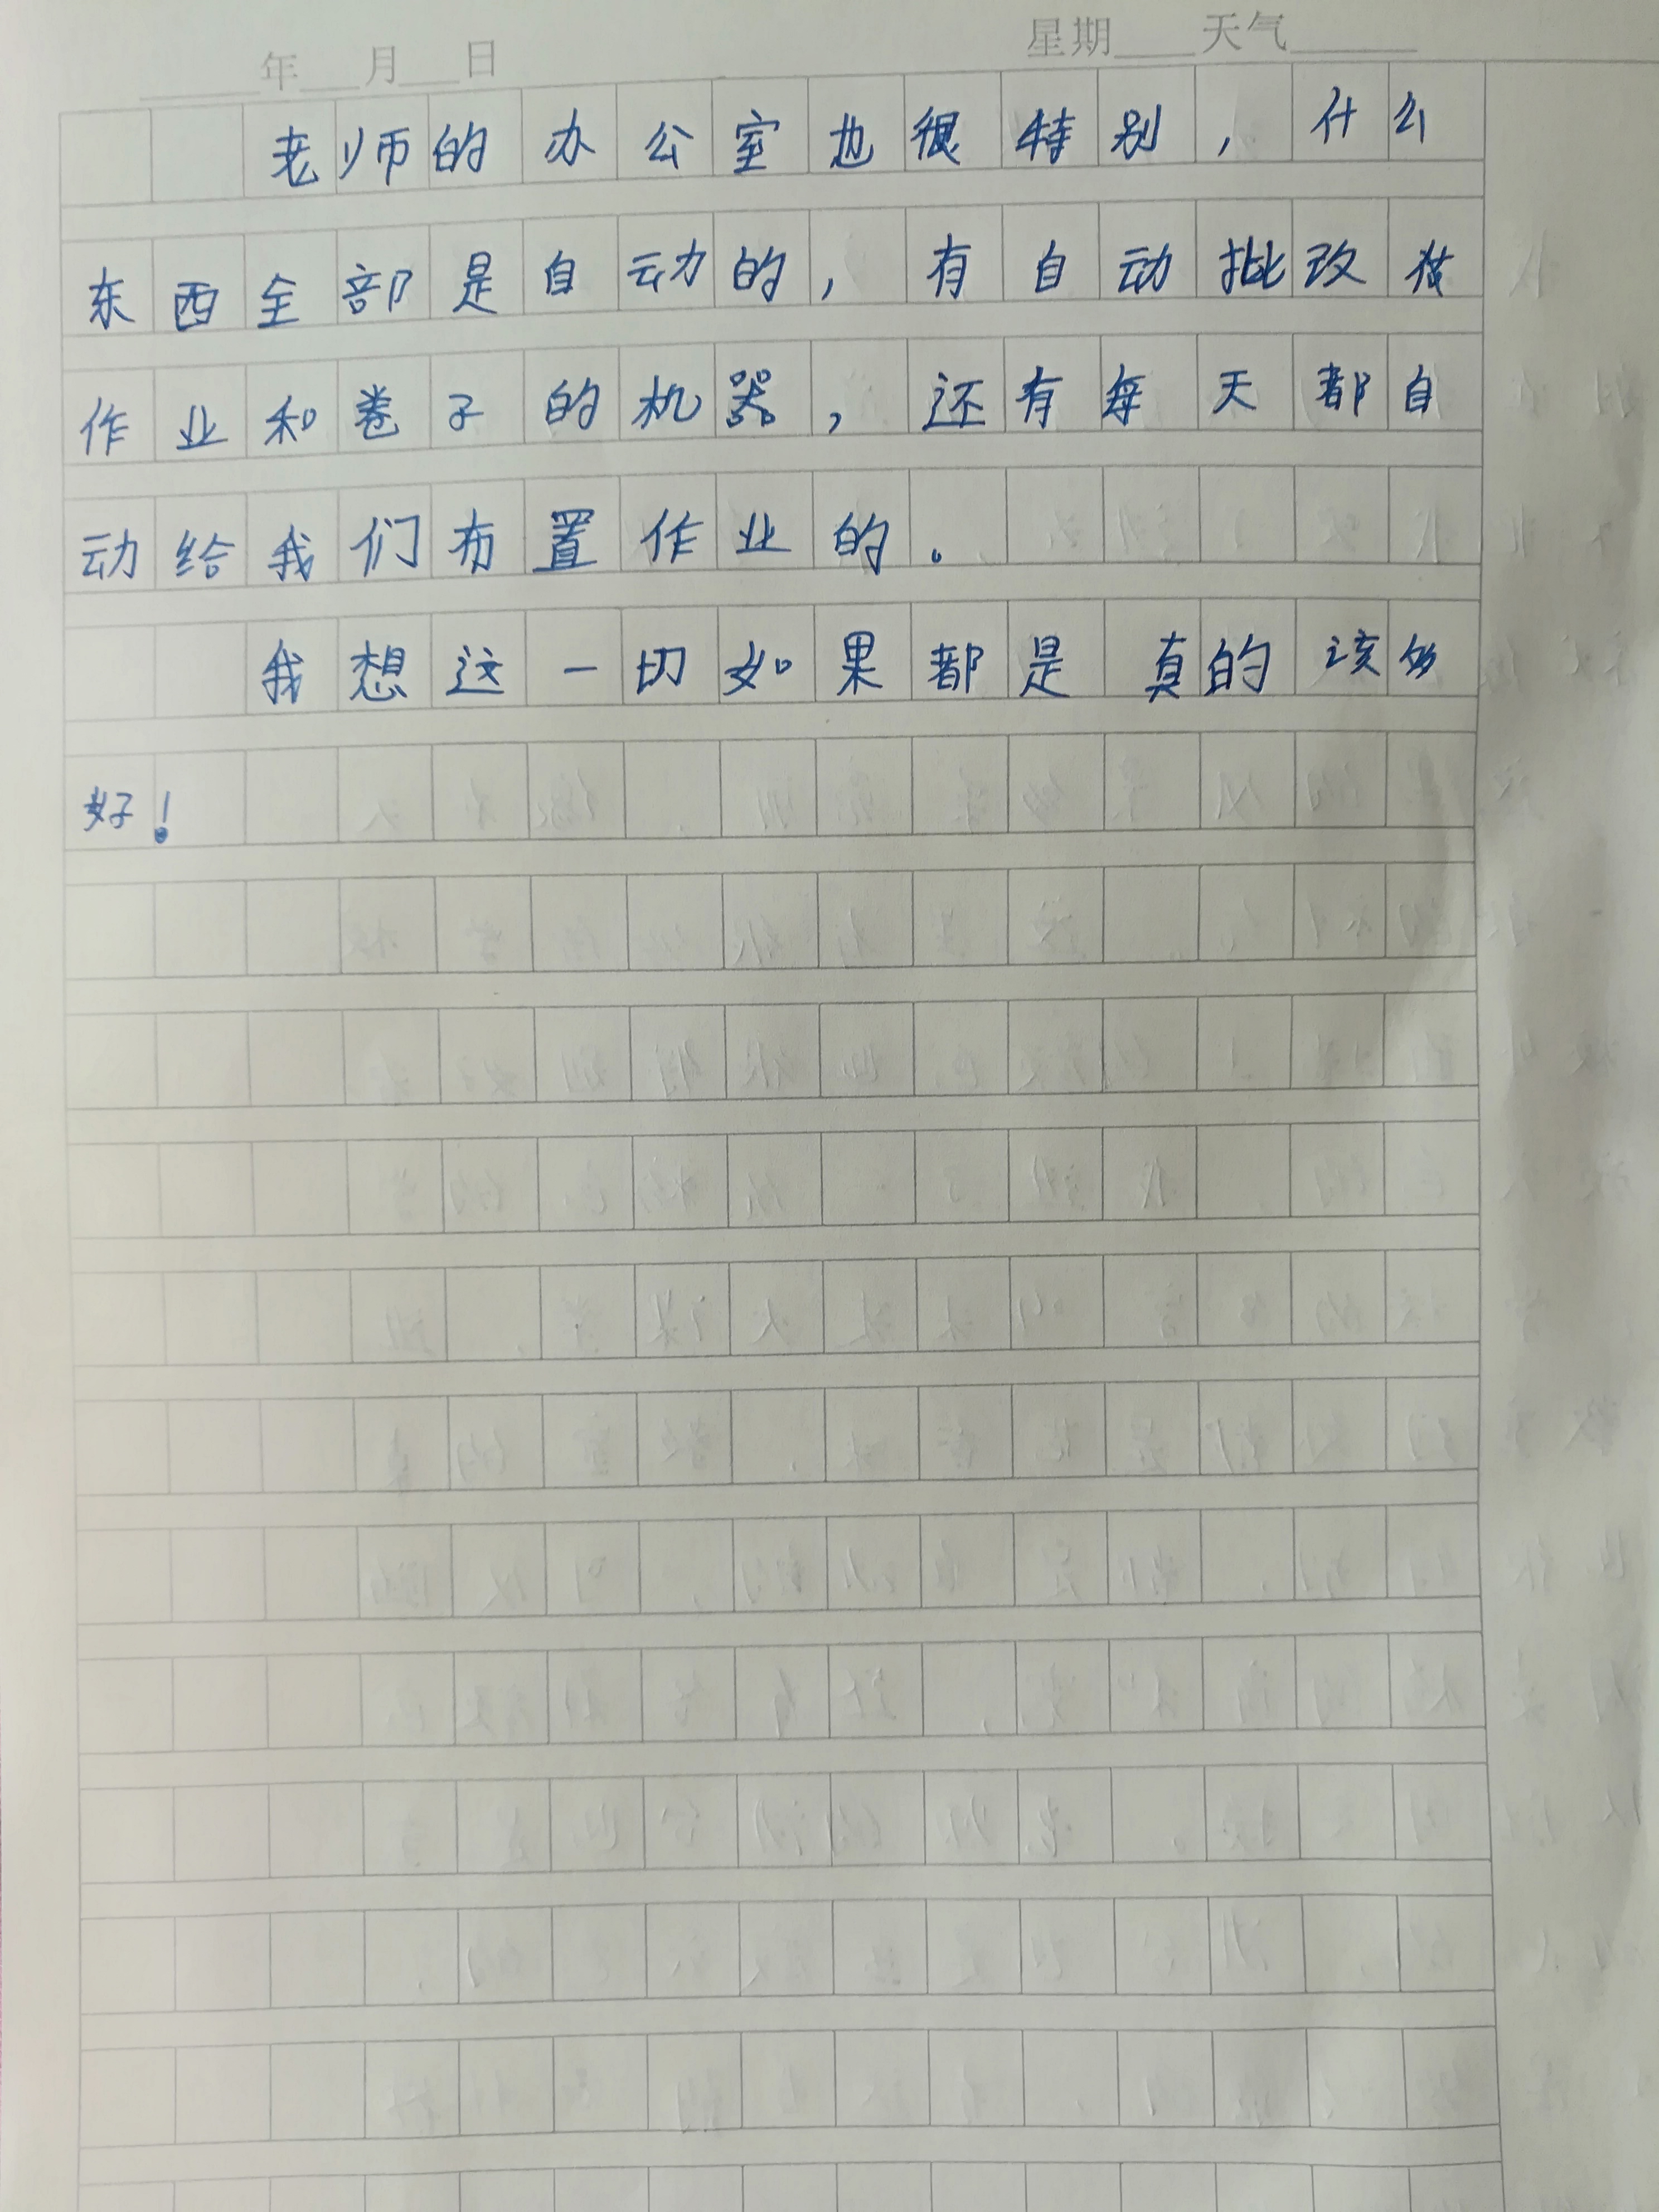 年 月 日 星期 天气
老师的办公室也很特别，什么
东西全部是自动的，有自动批改
作业和卷子的机器，还有每天都自
动给我们布置作业的。
我想这一切如果都是真的该多
好！